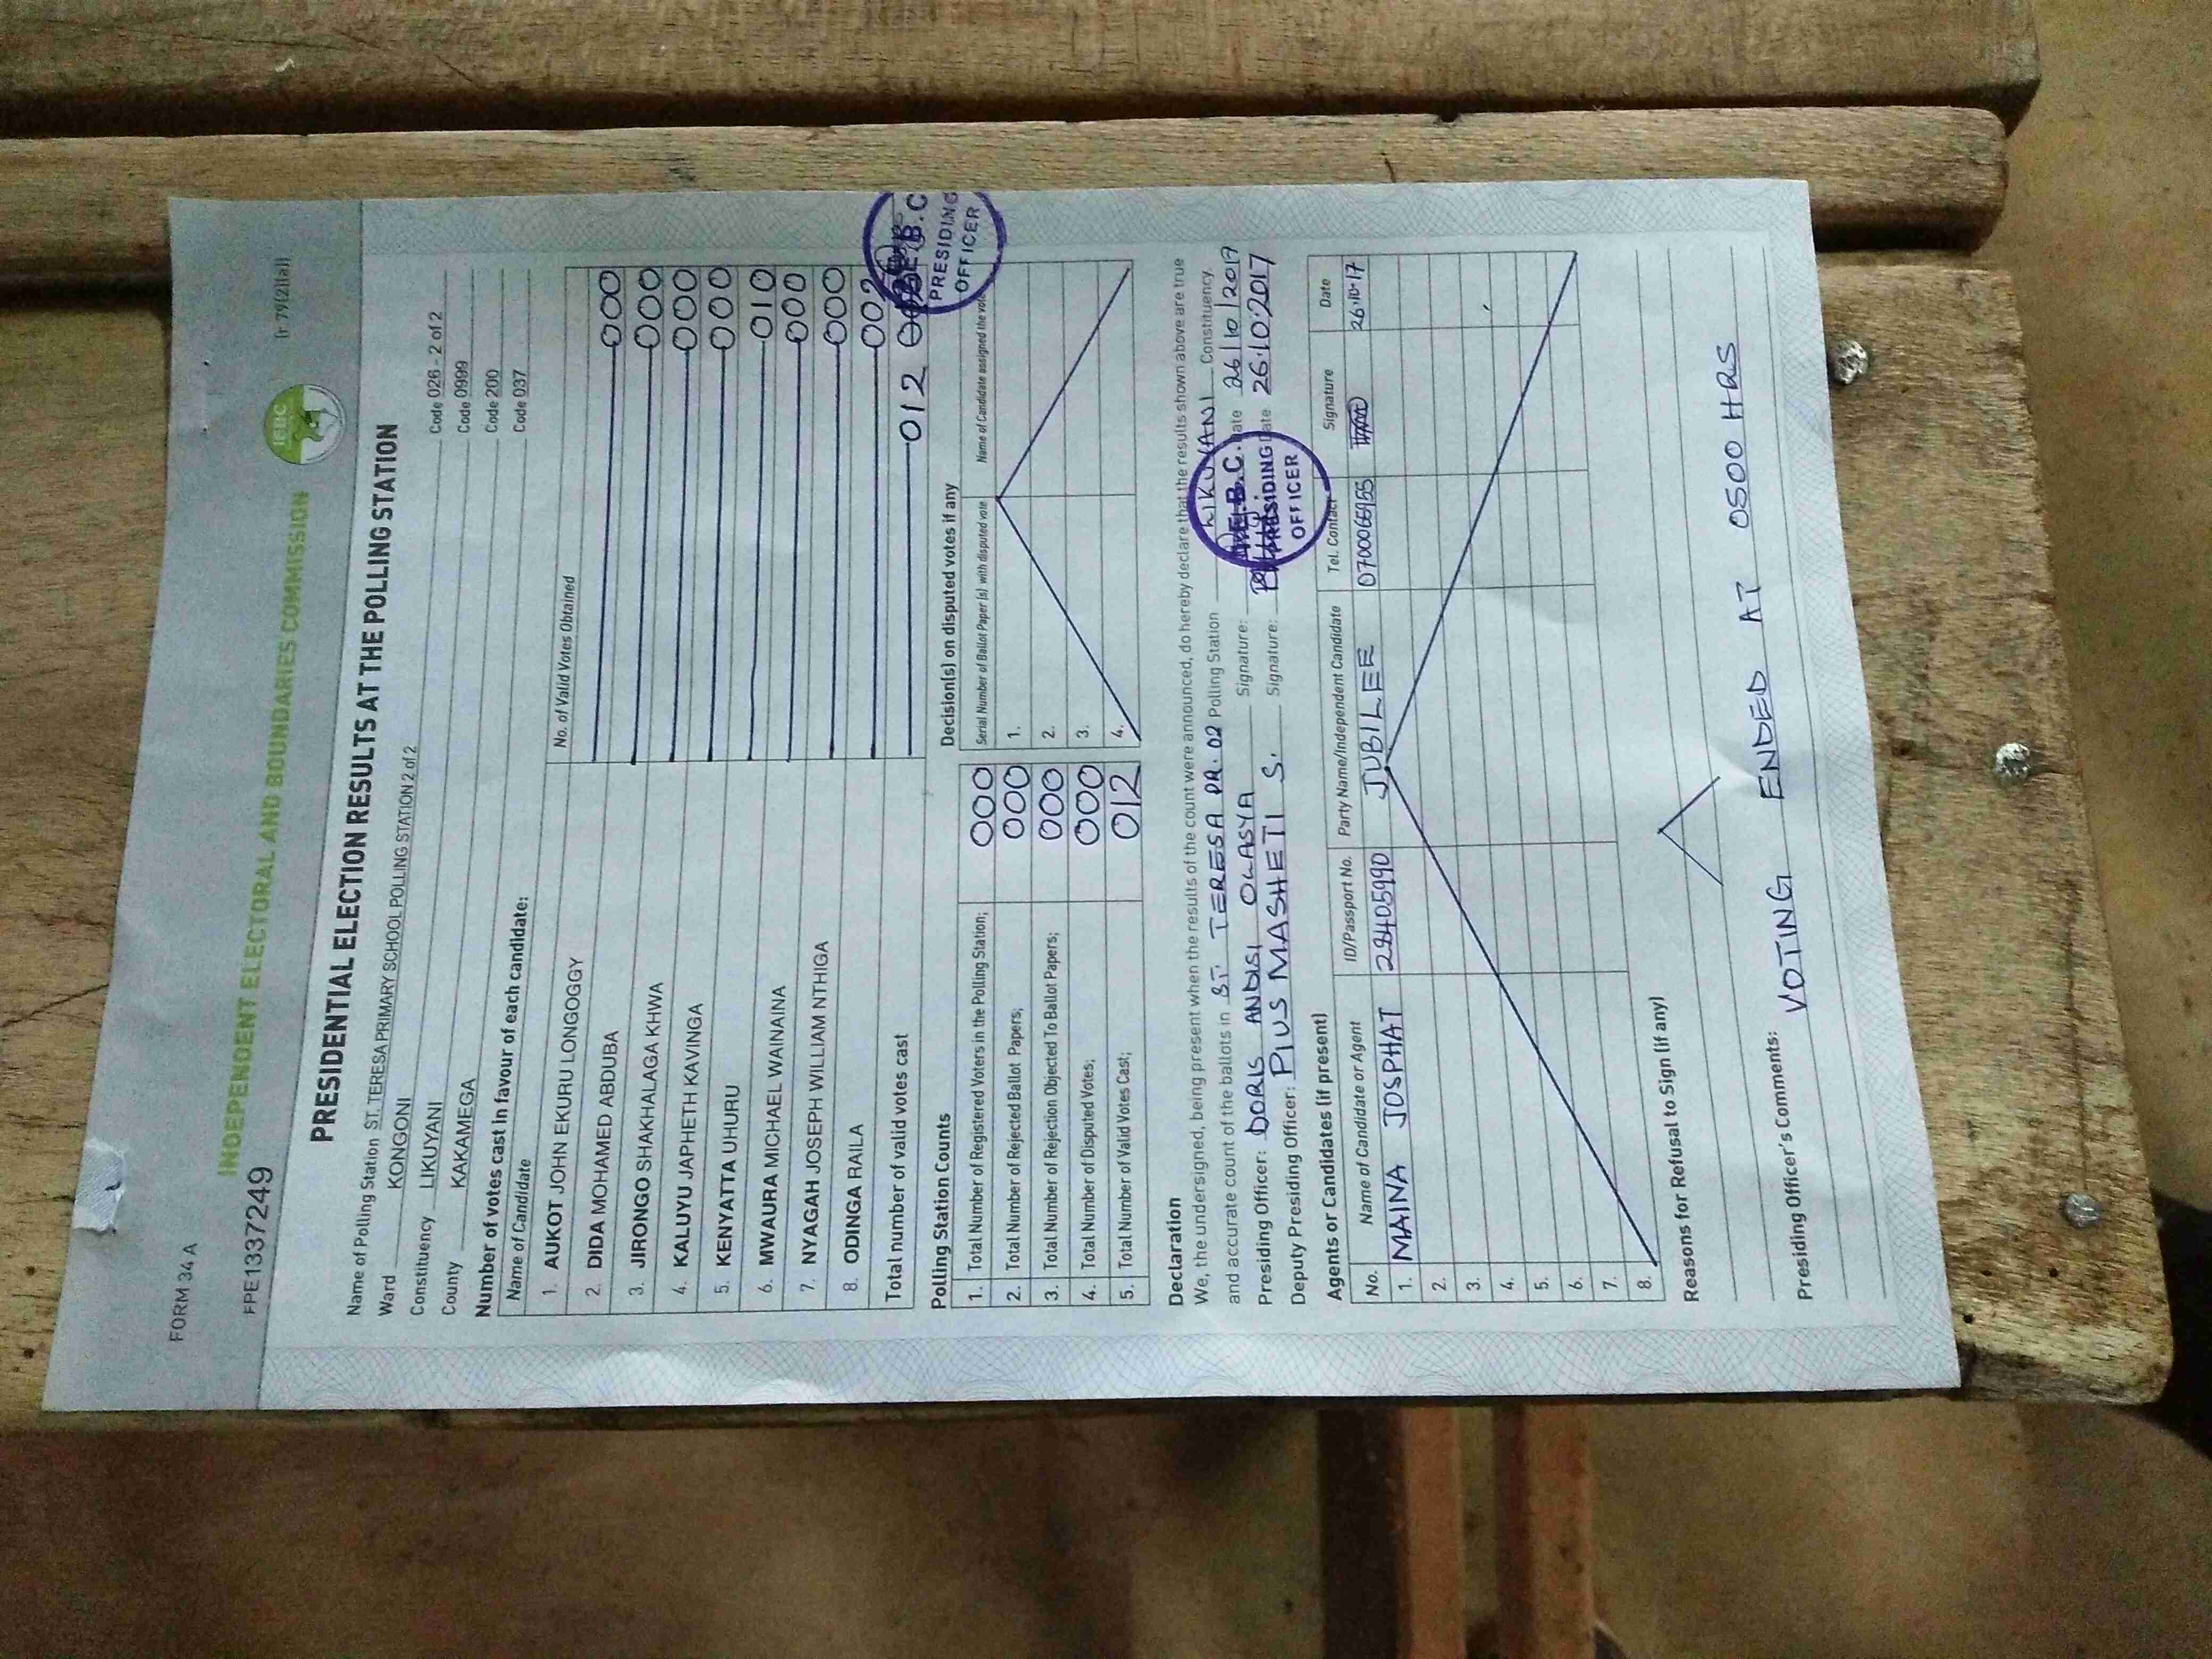 FORM 34 A
FPE1337249
INDEPENDENT ELECTORAL AND BOUNDARIES COMMISSION
IEBC
(r 79(2)(a))
PRESIDENTIAL ELECTION RESULTS AT THE POLLING STATION
Name of Polling Station ST. TERESA PRIMARY SCHOOL POLLING STATION 2 of 2 Code 026 - 2 of 2
Ward KONGONI Code 0999
Constituency LIKUYANI Code 200
County KAKAMEGA Code 037
Number of votes cast in favour of each candidate:
Name of Candidate No. of Valid Votes Obtained
1. AUKOT JOHN EKURU LONGOGGY 000
2. DIDA MOHAMED ABDUBA 000
3. JIRONGO SHAKHALAGA KHWA 000
4. KALUYU JAPHETH KAVINGA 000
5. KENYATTA UHURU 010
6. MWAURA MICHAEL WAINAINA 000
7. NYAGAH JOSEPH WILLIAM NTHIGA 000
8. ODINGA RAILA 002
Total number of valid votes cast 012
I.E.B.C
PRESIDING
OFFICER
Polling Station Counts
1. Total Number of Registered Voters in the Polling Station; 000
2. Total Number of Rejected Ballot Papers; 000
3. Total Number of Rejection Objected To Ballot Papers; 000
4. Total Number of Disputed Votes; 000
5. Total Number of Valid Votes Cast; 012
Decision(s) on disputed votes if any
Serial Number of Ballot Paper (s) with disputed vote Name of Candidate assigned the vote
1.
2.
3.
4.
Declaration
We, the undersigned, being present when the results of the count were announced, do hereby declare that the results shown above are true
and accurate count of the ballots in ST TERESA PR. 02 Polling Station LIKUYANI Constituency.
Presiding Officer: DORIS ANDISI OLASYA Signature: Date 26/10/2017
Deputy Presiding Officer: PIUS MASHETI S. Signature: Date 26.10.2017
I.E.B.C.
PRESIDING
OFFICER
Agents or Candidates (if present)
No. Name of Candidate or Agent ID/Passport No. Party Name/Independent Candidate Tel. Contact Signature Date
1. MAINA JOSPHAT 28405990 JUBILEE 26.10.17
2.
3.
4.
5.
6.
7.
8.
Reasons for Refusal to Sign (if any)
Presiding Officer's Comments: VOTING ENDED AT 0500 HRS